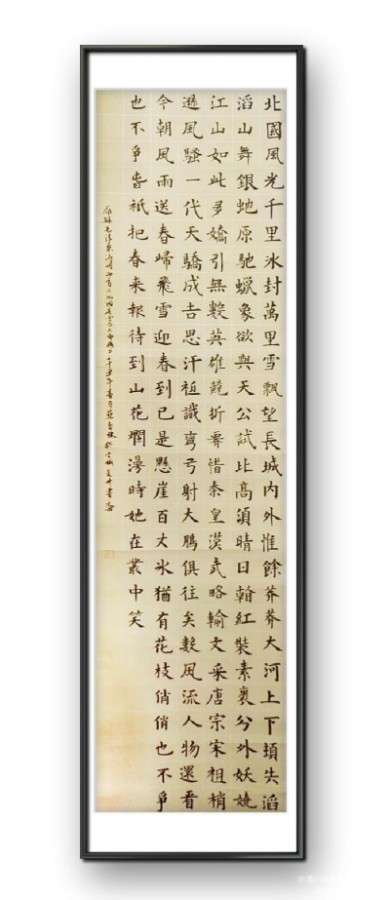 北國風光千里氷封萬里雪飄望長城内外惟餘莽莽大河上下頓失滔
滔山舞銀虵原馳蠟象欲與天公試比髙須晴日翰紅裝素裹分外妖嬈
江山如此多嬌引無數英雄競折腰惜秦皇漢武略輸文采唐宗宋祖稍
遜風騷一代天驕成吉思汗祗識彎弓射大鵰俱往矣數風流人物還看
今朝風雨送春歸飛雪迎春到已是懸崖百丈氷猶有花枝俏俏也不爭
也不爭春祇把春来報待到山花爛漫時她在叢中笑